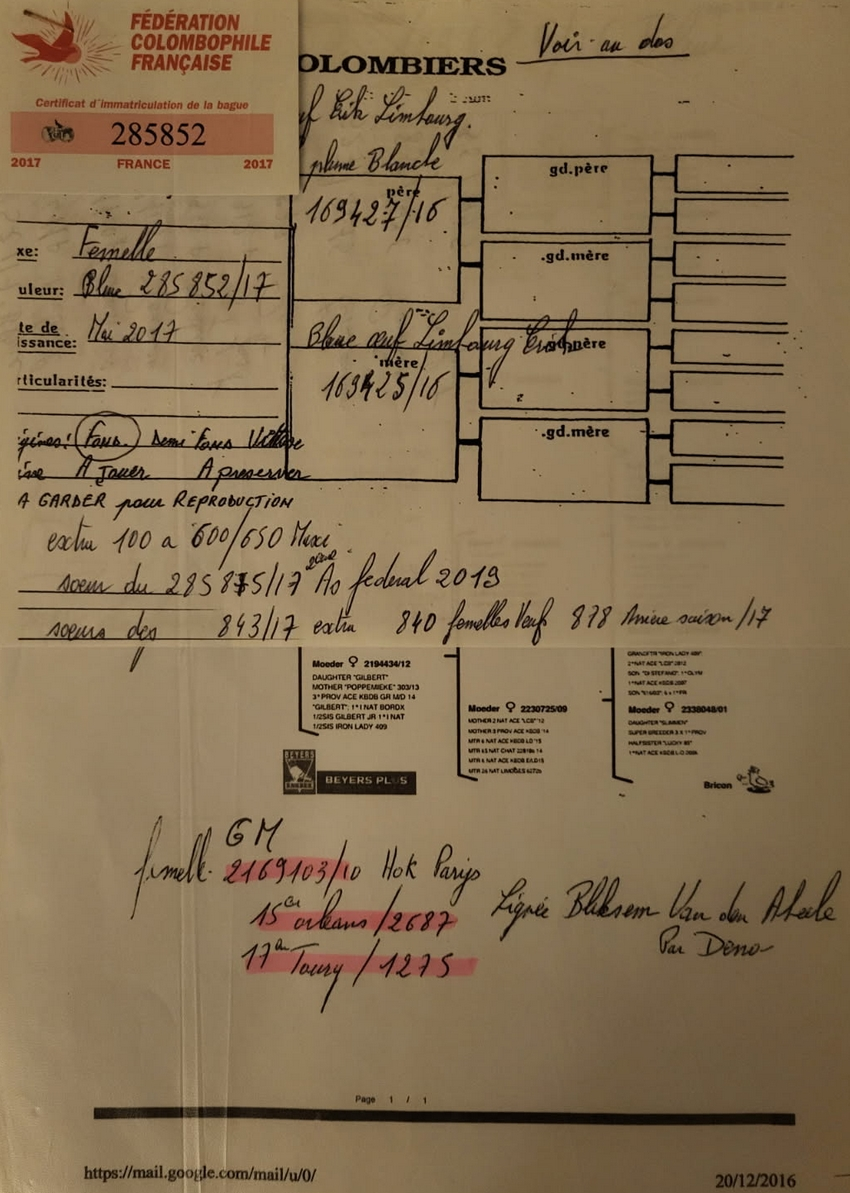 FÉDÉRATION
COLOMBOPHILE
FRANÇAISE
Certificat d'immatriculation de la bague
285852
2017 FRANCE 2017
Voir au dos
OLOMBIERS
uf Erik Limbourg.
plume Blanche
père
169427/16
gd.père
.gd.mère
xe: Femelle
uleur: Blue 285852/17
te de
issance: Mai 2017
Blaue œuf Limbourg Erik
mère
169425/16
.gd.mère
rticularités:
gines: Fond Demi Fond Vitesse
A Jouer A preserver
A GARDER pour REPRODUCTION
extra 100 a 600/650 Maxi
soeur du 285875/17 As federal 2019
soeurs des 843/17 extra 840 femelles Veuf 878 Arrière saison/17
Moeder ♀ 2194434/12
DAUGHTER "GILBERT"
MOTHER "POPPEMIEKE" 303/13
3° PROV ACE KBDB GR M/D 14
"GILBERT": 1°I NAT BORDX
1/2SIS GILBERT JR 1°I NAT
1/2SIS IRON LADY 409
Moeder ♀ 2230725/09
MOTHER 2 NAT ACE "LCD" '12
MOTHER 3 PROV ACE KBDB '14
MTR 6 NAT ACE KBDB LD '15
MTR 4 NAT ACE KBDB E/LD15
1°NAT ACE KBDB 2007
Moeder ♀ 2338048/01
DAUGHTER "SLIMMEN"
SUPER BREEDER 3 X 1°PROV
HALFSISTER "LUCKY 85"
1°NAT ACE KBDB L-D 2006
BEYERS
BEYERS PLUS
Bricon
GM
femelle 2169103/10 Hok Parijs
15er orleans/2687
17er Toury/1275
Lignée Bliksem Van den Abeele
Par Deno
Page 1 / 1
https://mail.google.com/mail/u/0/
20/12/2016